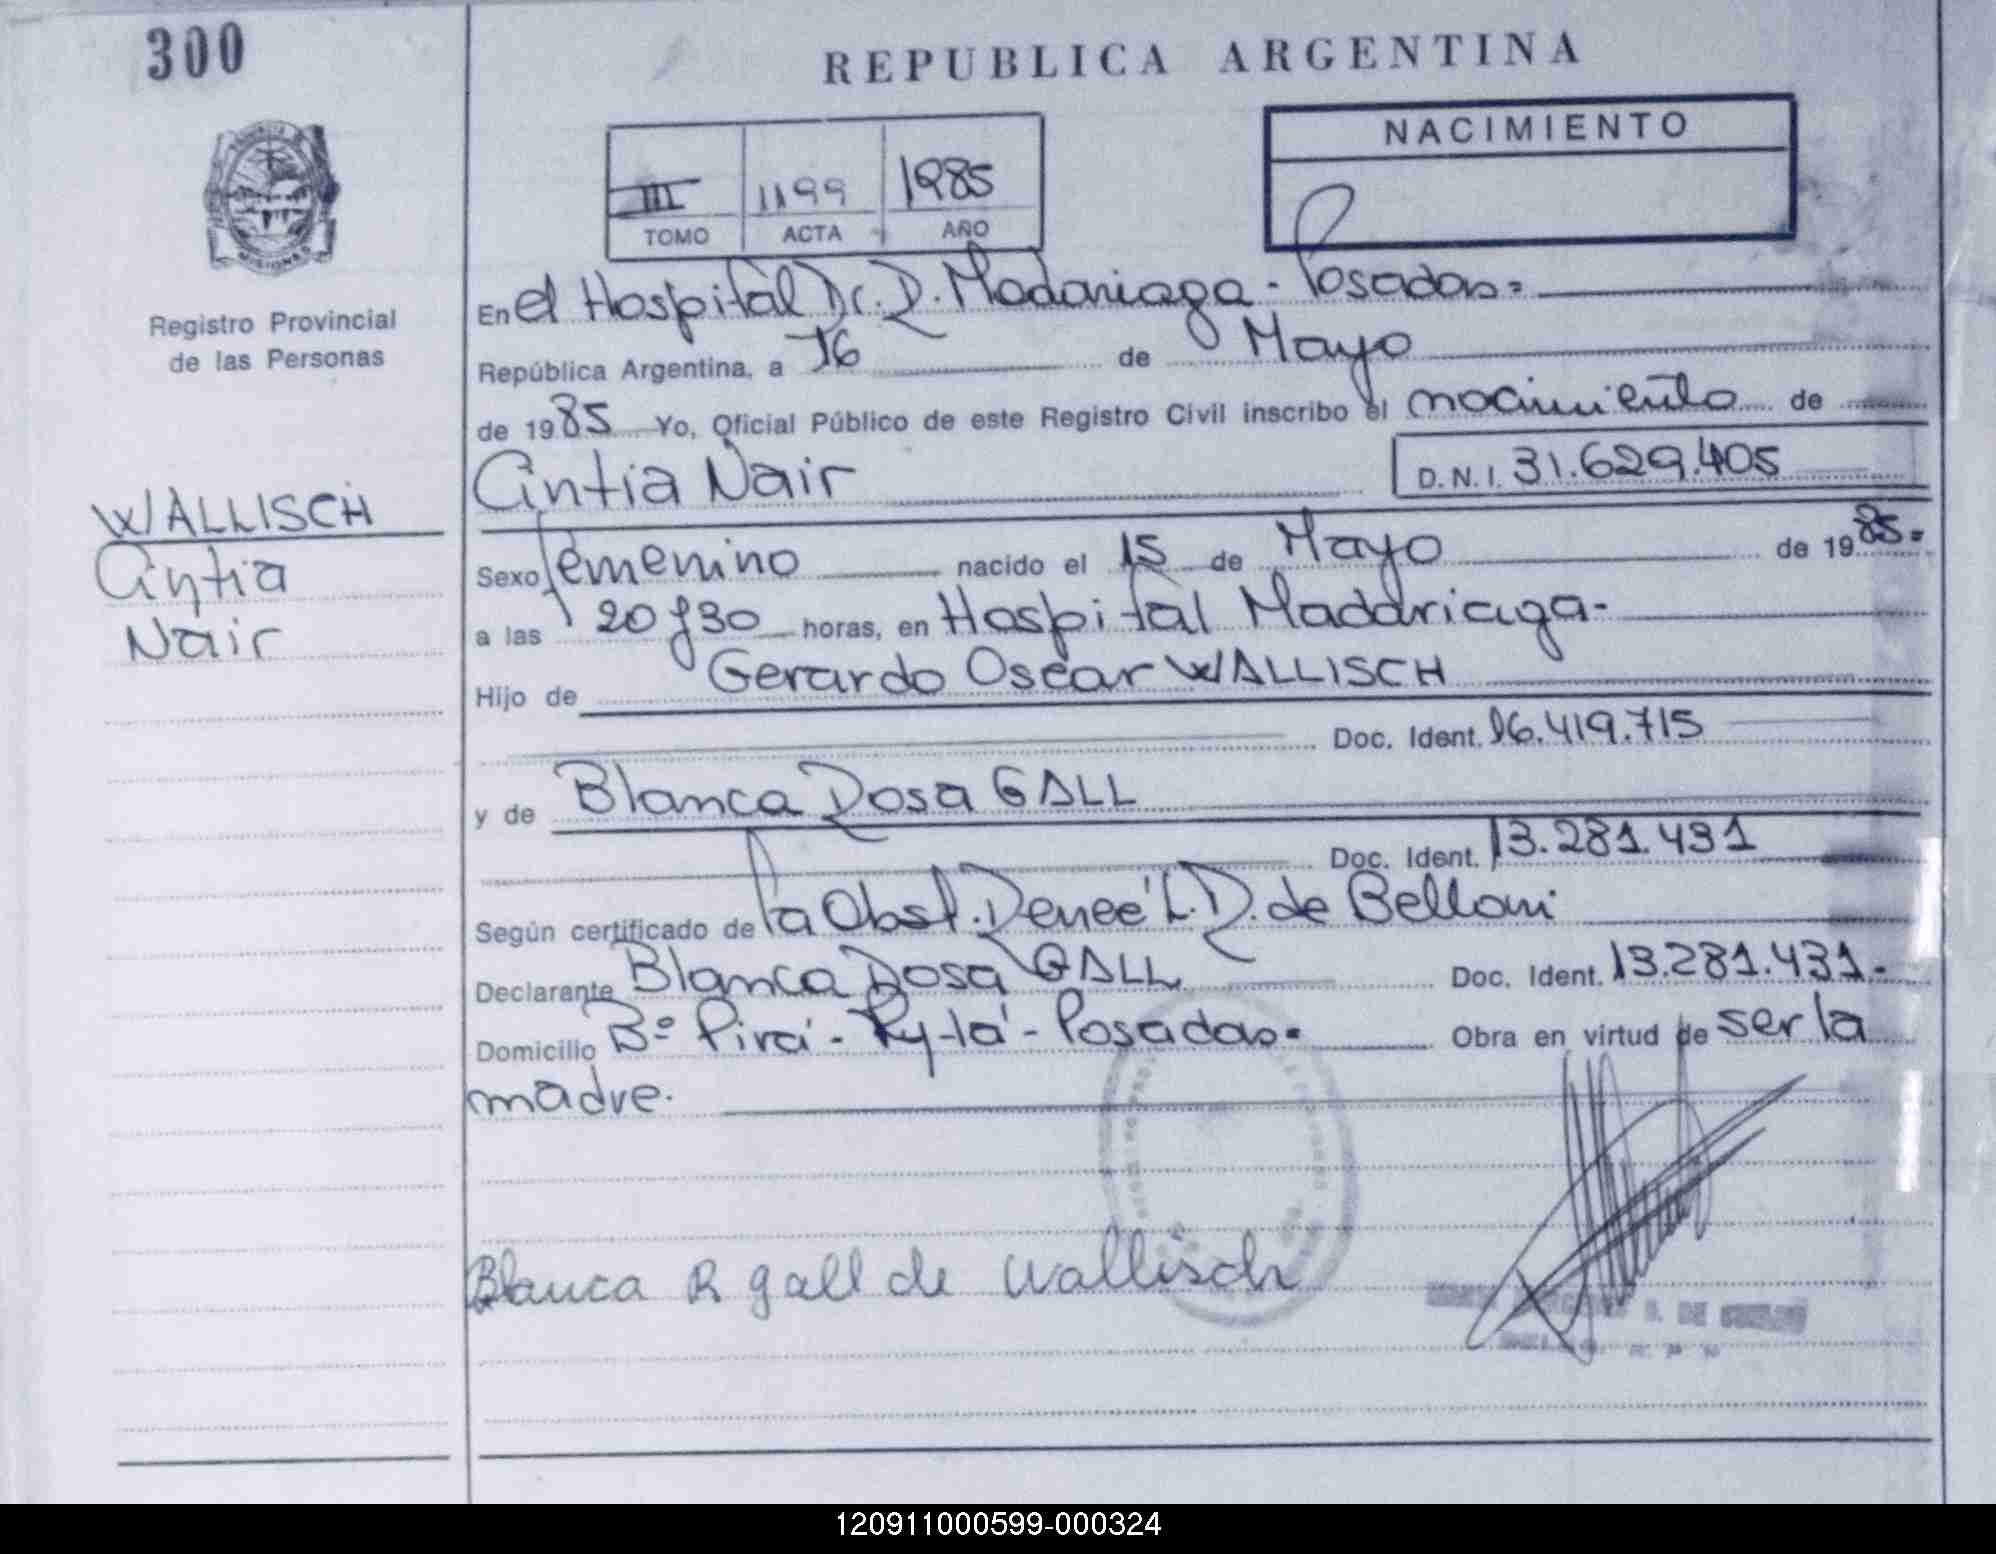 300
REPUBLICA ARGENTINA
NACIMIENTO
III 1199 1985
TOMO ACTA AÑO
MISIONES
Registro Provincial
de las Personas
En el Hospital Dr. R. Madariaga - Posadas =
República Argentina, a 16 de Mayo
de 1985 Yo, Oficial Público de este Registro Civil inscribo el nacimiento de
Cintia Nair D.N.I. 31.629.405
WALLISCH
Cintia
Nair
Sexo femenino nacido el 15 de Mayo de 1985=
a las 20 y 30 horas, en Hospital Madariaga-
Hijo de Gerardo Oscar WALLISCH
Doc. Ident. 16.419.715
y de Blanca Rosa GALL
Doc. Ident. 13.281.431
Según certificado de la Obst. Reneé L. R. de Belloni
Declarante Blanca Rosa GALL Doc. Ident. 13.281.431.-
Domicilio Bº Piraí - Py-tá - Posadas= Obra en virtud de ser la
madre.
Blanca R gall de Wallisch
120911000599-000324